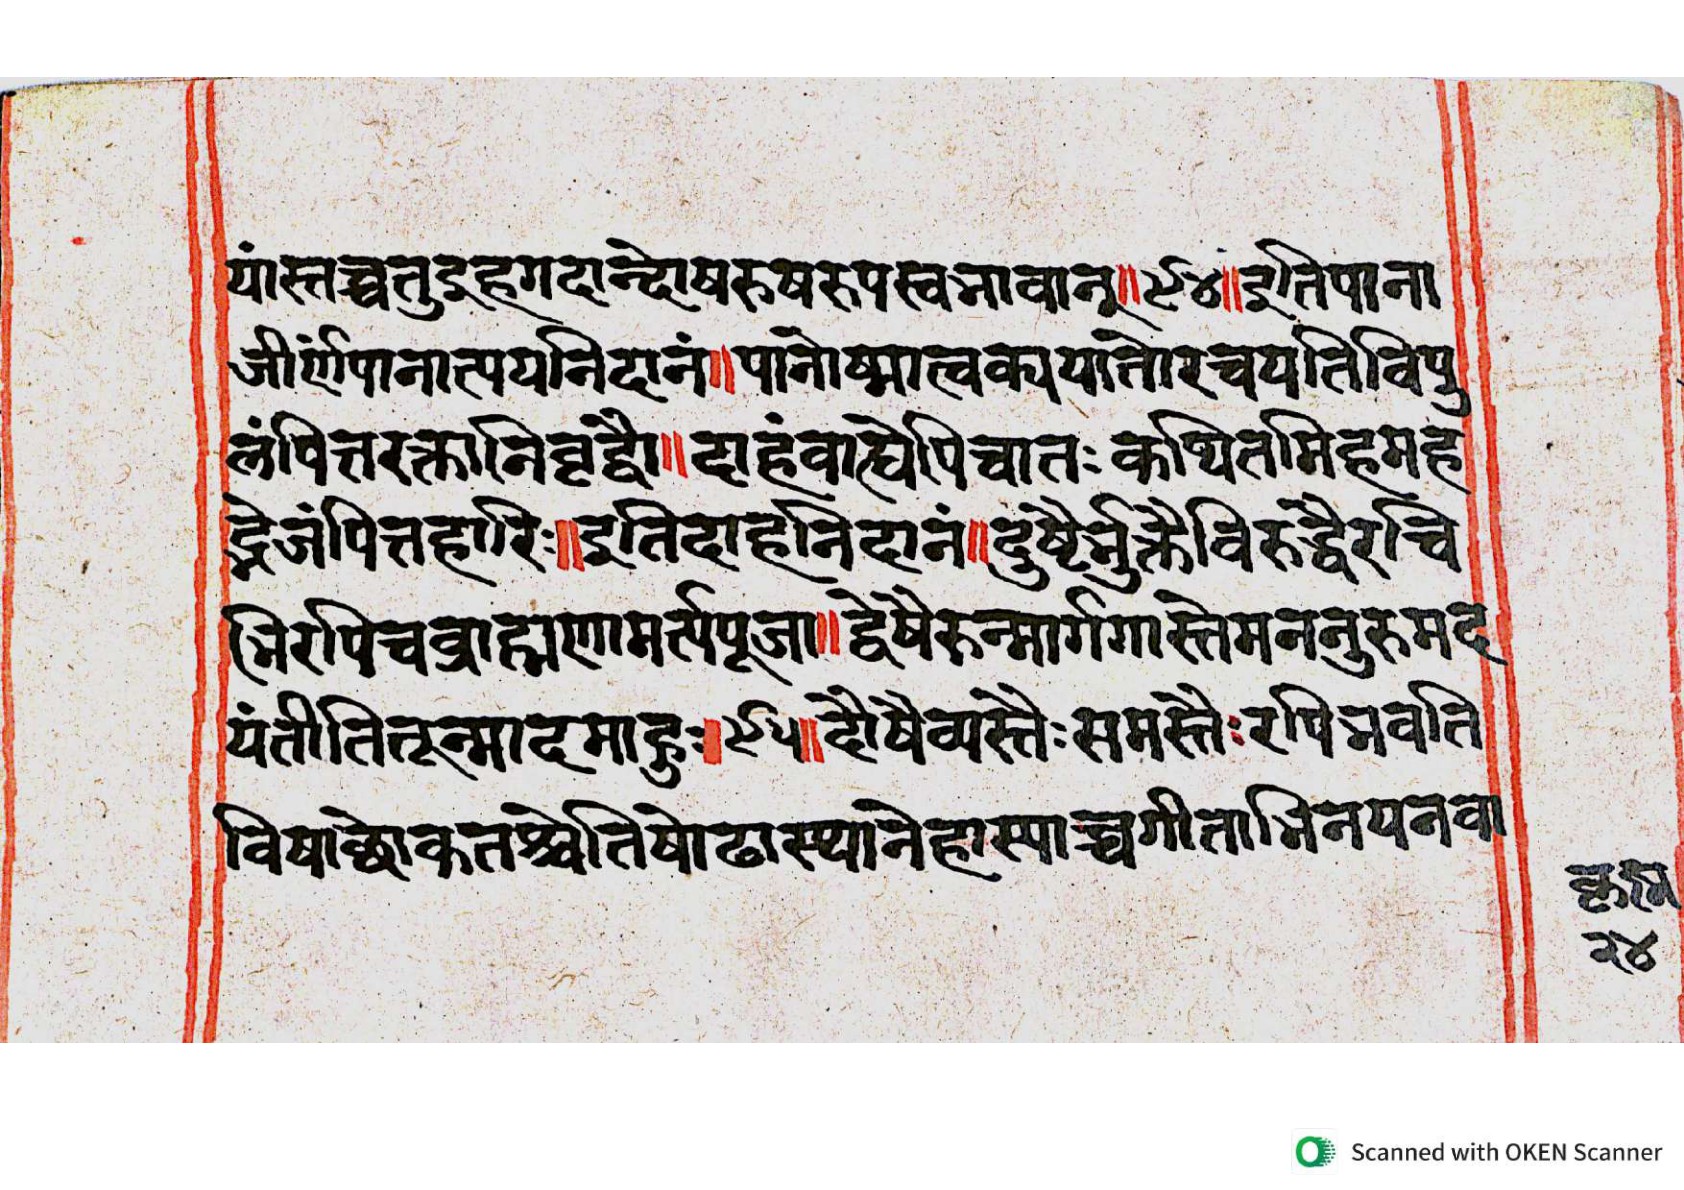 यांस्तच्चतुद्रुहगदान्दोषरुषरूपस्वभावान्॥९४॥इतिपाना
जीर्णपानात्पयनिदानं॥पानोष्मात्वक्पयातोरचयतिविपु
लंपित्तरक्तानिवृद्वौ॥दाहंवात्यपिचातः कथितमिहमह
द्वेजंपित्तहारिः॥इतिदाहनिदानं॥दुष्टैर्भुक्तैविरुद्धैरचि
भिरपिचब्राह्मणामर्त्यपूजा॥द्वेषैरुन्मार्गगास्तेमननुरुमद
यंतीतितून्मादमाहुः॥९५॥दौषैव्यस्तैःसमस्तैःरपिभवति
विषाच्छोकतश्चेतिषोढास्थानेहास्पाच्चगीताभिनयनवा
२४
Scanned with OKEN Scanner